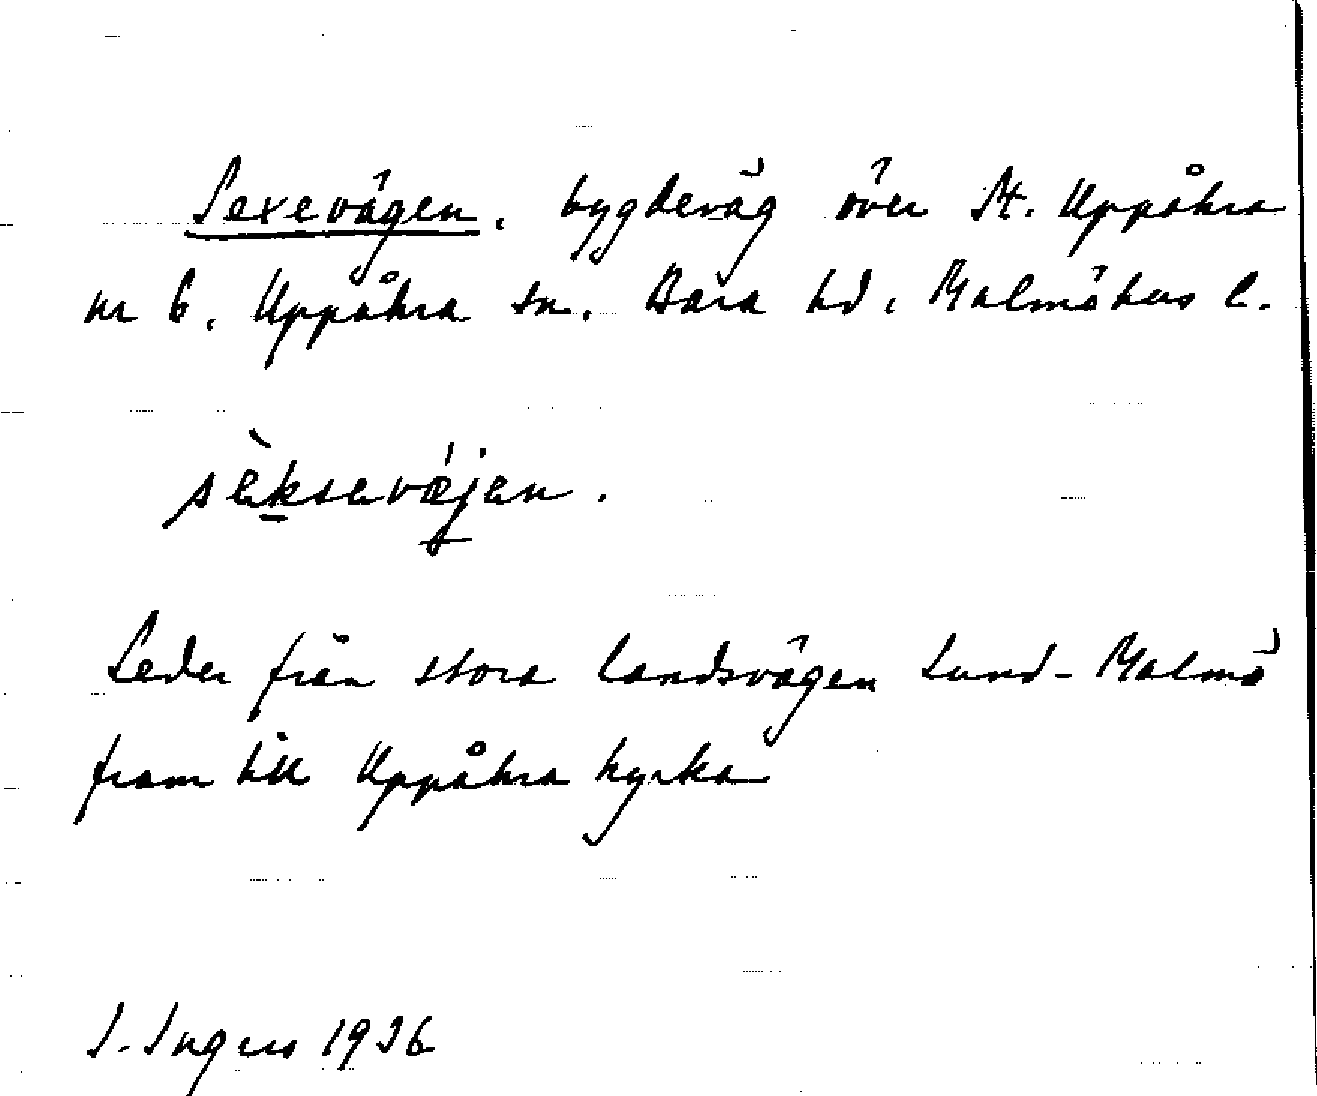 Sexevägen, bygdeväg över St. Uppåkra
nr 6, Uppåkra sn, Bara hd, Malmöhus l.
sèksevǽjen.
Leder från stora landsvägen Lund-Malmö
fram till Uppåkra kyrka
I. Ingers 1936